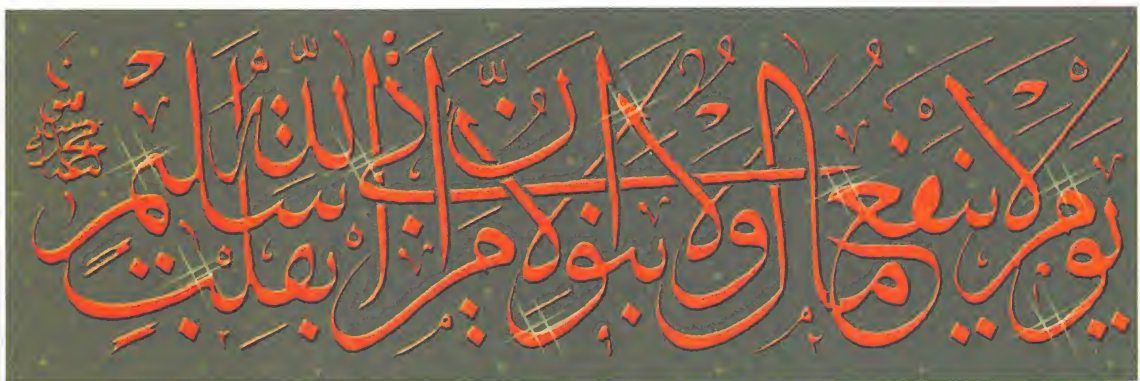 يَوْمَ لَا يَنْفَعُ مَالٌ وَلَا بَنُونَ إِلَّا مَنْ أَتَى اللَّهَ بِقَلْبٍ سَلِيمٍ